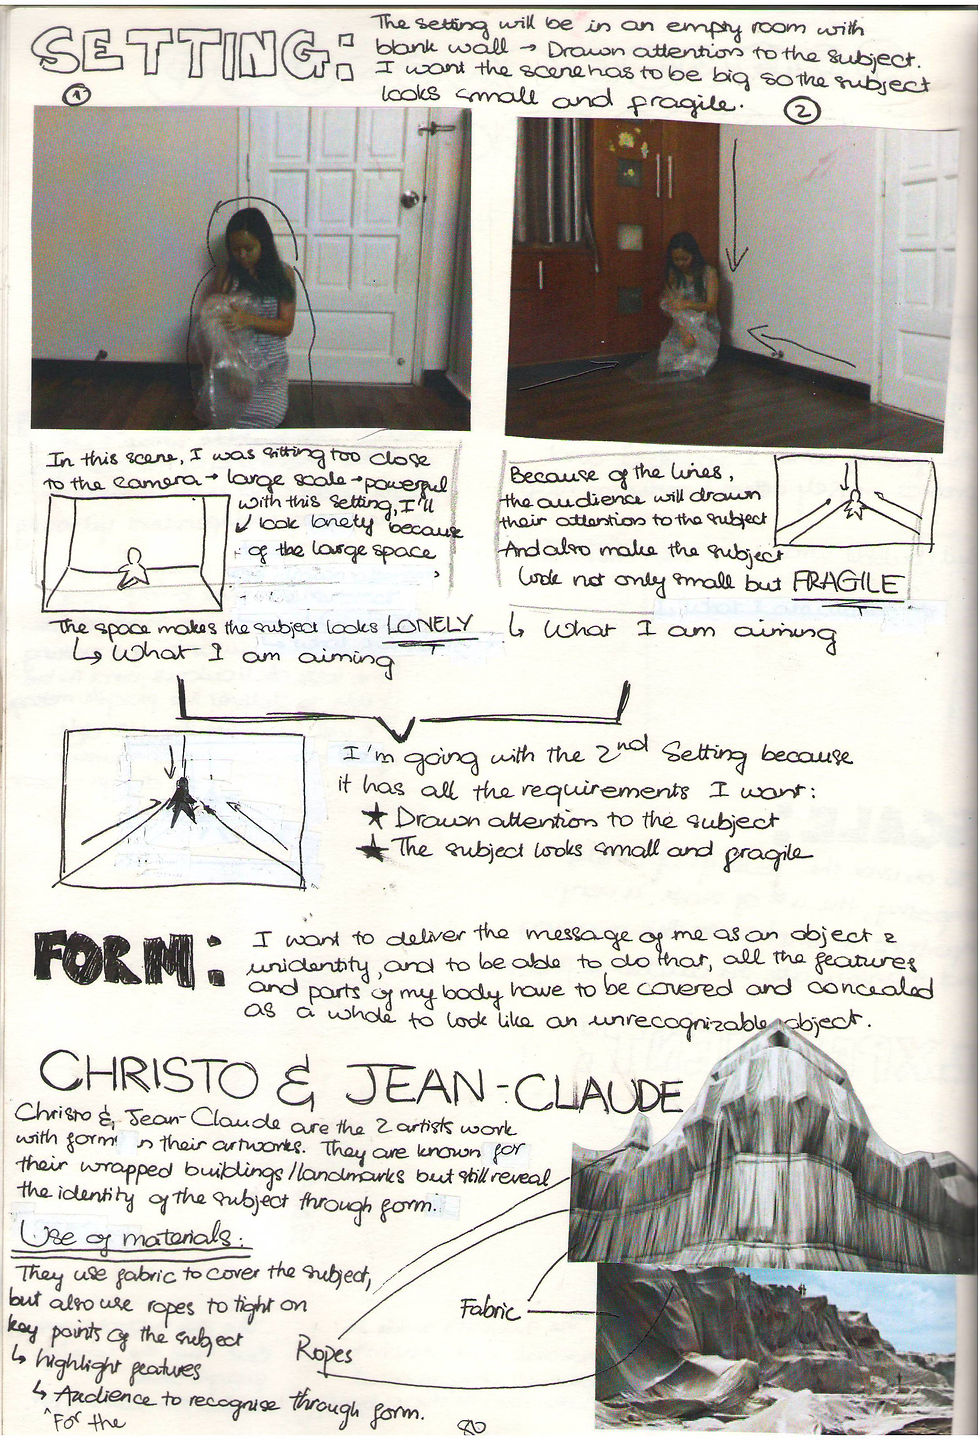 SETTING:
The setting will be in an empty room with
blank wall → Drawn attention to the subject.
I want the scene has to be big so the subject
looks small and fragile.
1
2
In this scene, I was sitting too close
to the camera → large scale → powerful
with this setting, I'll
look lonely because
of the large space
The space makes the subject looks LONELY
↳ What I am aiming
Because of the lines,
the audience will drawn
their attention to the subject
And also make the subject
look not only small but FRAGILE
↳ What I am aiming
I'm going with the 2nd Setting because
it has all the requirements I want:
★ Drawn attention to the subject
★ The subject looks small and fragile
FORM:
I want to deliver the message of me as an object &
unidentity, and to be able to do that, all the features
and parts of my body have to be covered and concealed
as a whole to look like an unrecognizable object.
CHRISTO & JEAN-CLAUDE
Christo & Jean-Claude are the 2 artists work
with form in their artworks. They are known for
their wrapped buildings/landmarks but still reveal
the identity of the subject through form.
Use of materials:
They use fabric to cover the subject,
but also use ropes to tight on
key points of the subject
↳ highlight features
↳ Audience to recognise through form.
^For the
Ropes
Fabric